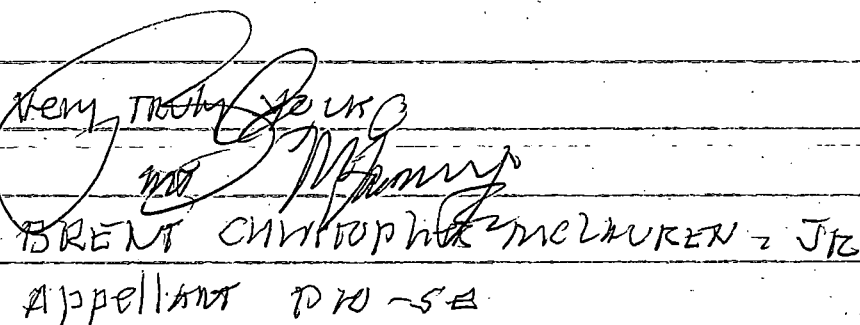 Very Truly Yours
BRENT CHRISTOPHER MCLAUREN - JR
Appellant pro-se